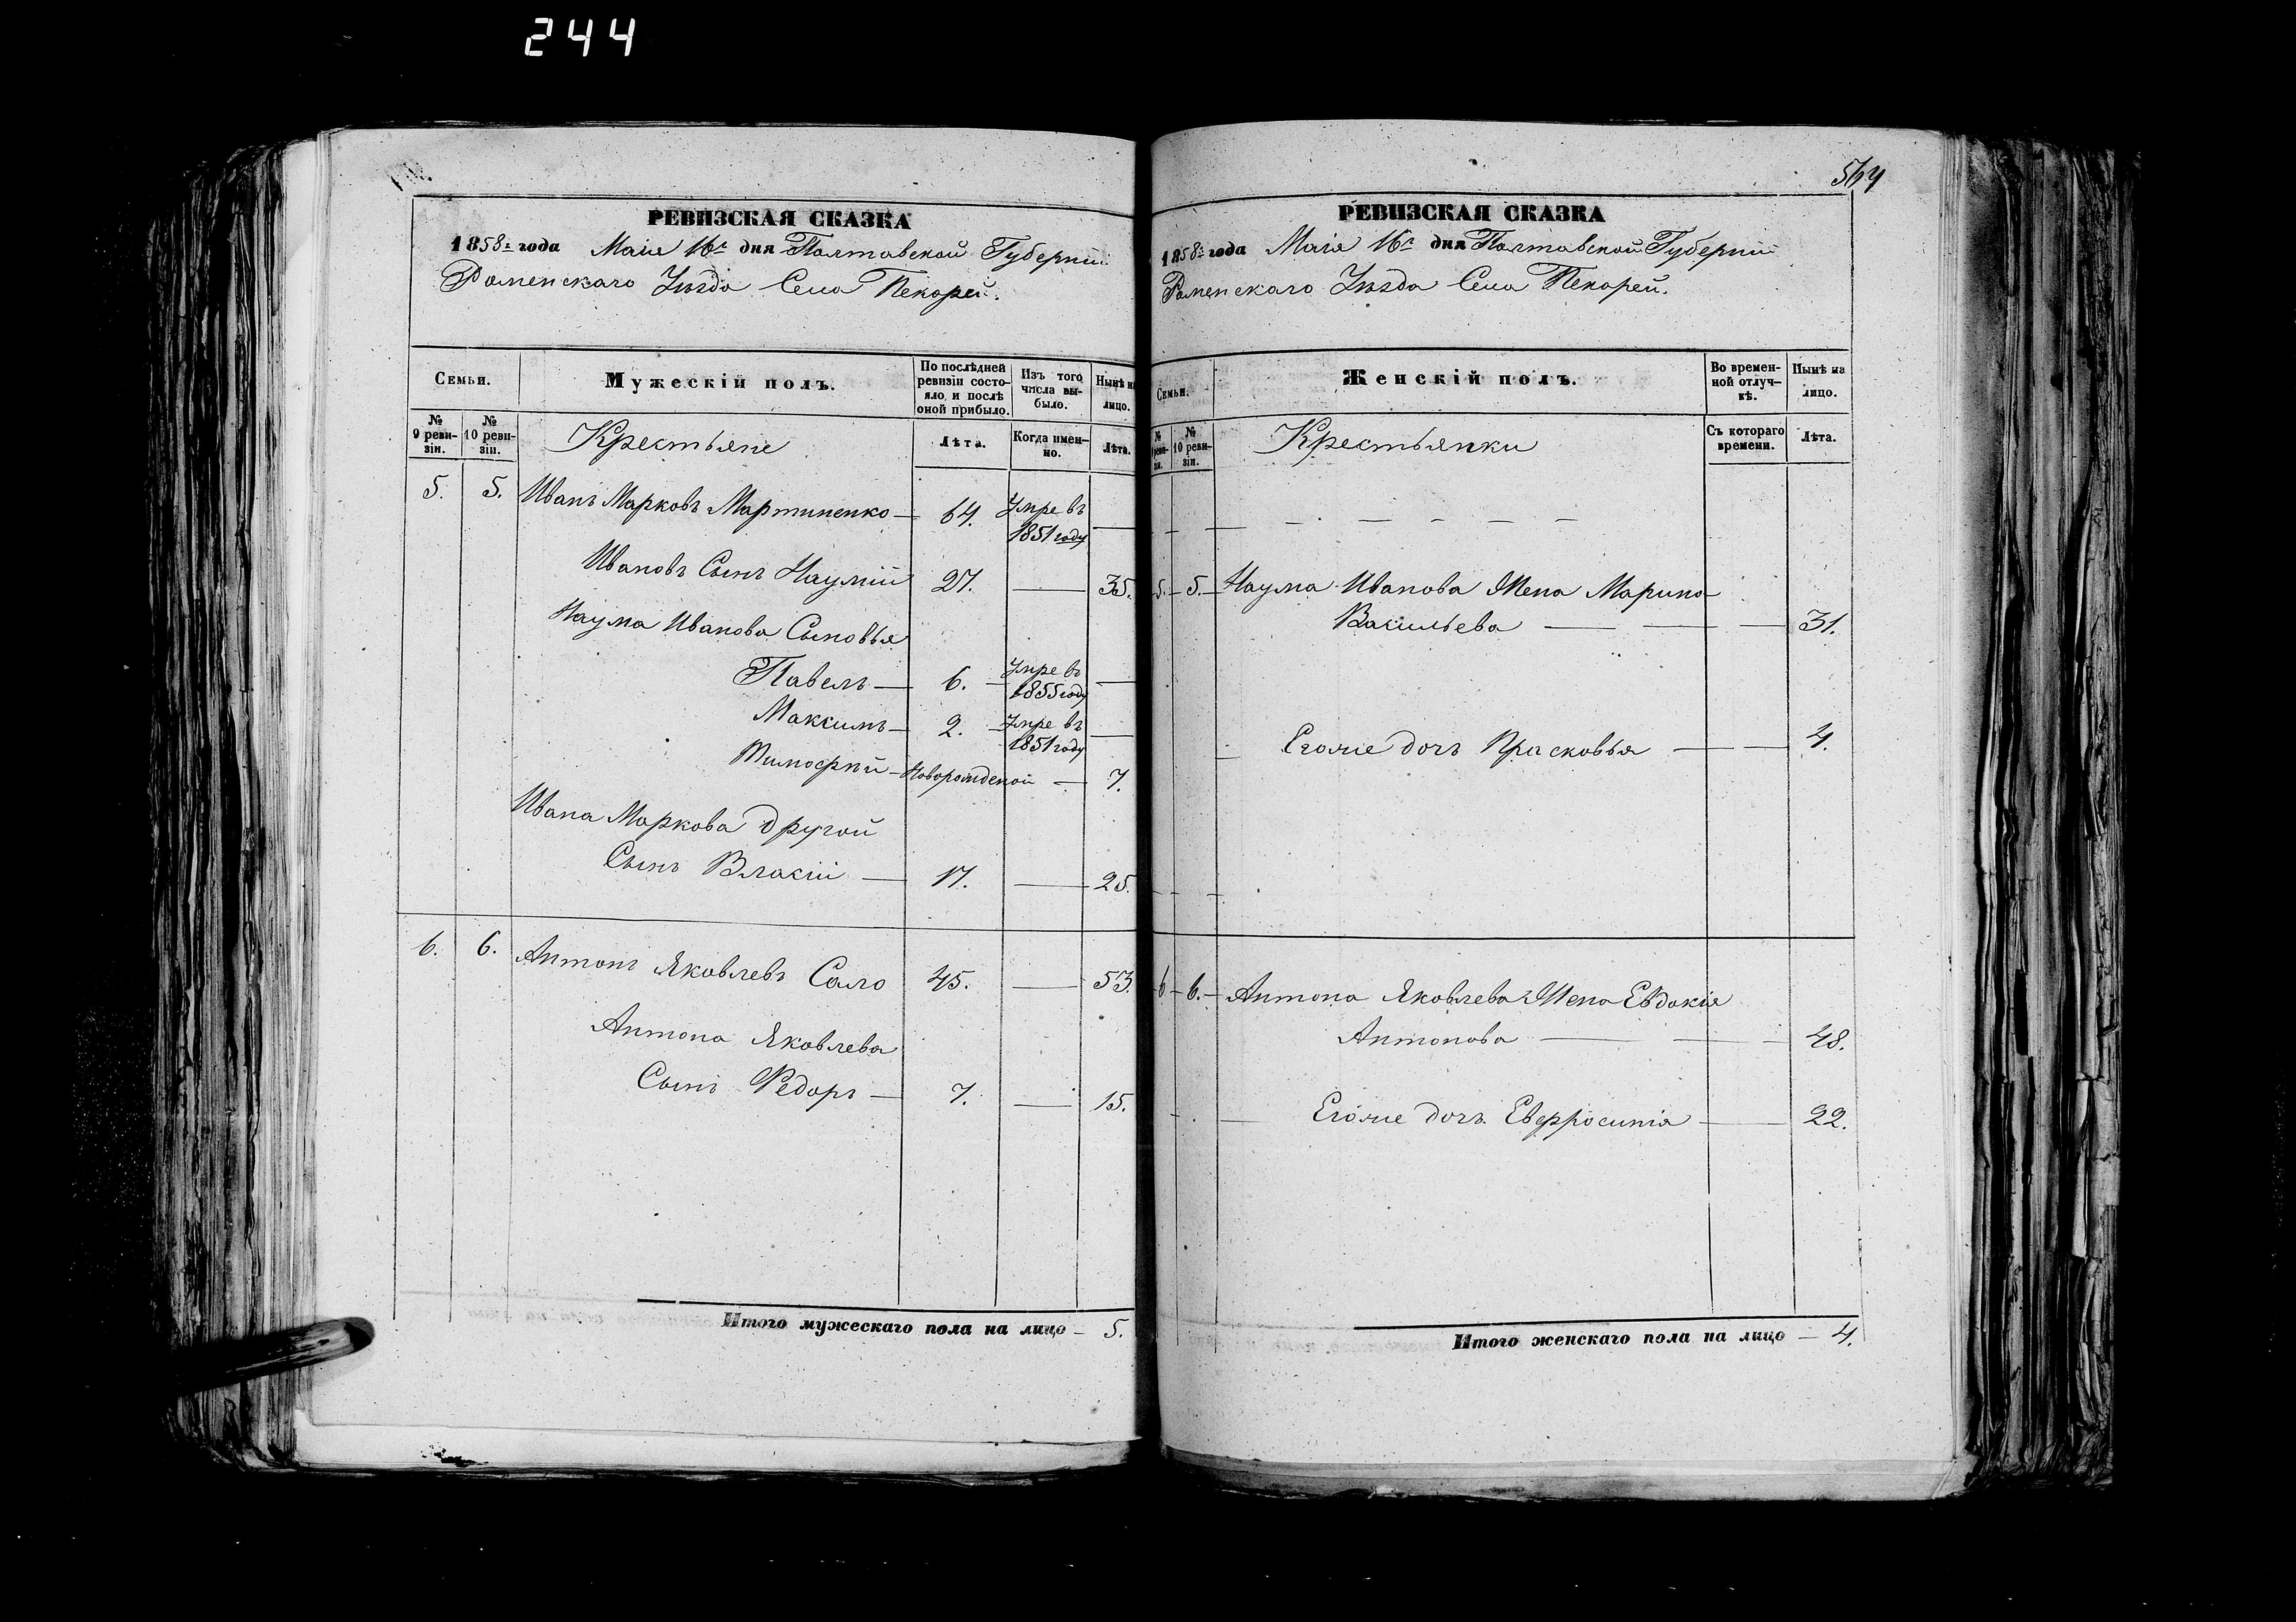 244
РЕВИЗСКАЯ СКАЗКА
1858 г. года Маія 16 г. дня Полтавской Губерніи
Роменскаго Уѣзда Села Пекарей.
Семьи.
Мужескій полъ.
По послѣдней ревизіи состояло, и послѣ оной прибыло.
Изъ того числа выбыло.
Нынѣ на лицо.
№ 9 ревизіи.
№ 10 ревизіи.
Крестьяне
Лѣта.
Когда именно.
Лѣта.
5. 5. Иванъ Марковъ Мартиненко — 64. Умре въ 1851 году —
Ивановъ Сынъ Наумій 27. — 35.
Наума Иванова Сыновья
Павелъ — 6. — Умре въ 1855 году —
Максимъ — 2. — Умре въ 1851 году —
Тимофѣй — Новорожденой — 7.
Ивана Маркова другой
Сынъ Власій — 17. — 25.
6. 6. Антонъ Яковлевъ Сало 45. — 53.
Антона Яковлева
Сынъ Федоръ — 7. — 15.
Итого мужескаго пола на лицо — 5.
РЕВИЗСКАЯ СКАЗКА
1858 г. года Маія 16 г. дня Полтавской Губерніи
Роменскаго Уѣзда Села Пекарей.
Семьи.
Женскій полъ.
Во временной отлучкѣ.
Нынѣ на лицо.
№ 10 ревизіи.
Крестьянки
Съ котораго времени.
Лѣта.
5. — 5. — Наума Иванова Жена Марина
Васильева — — — 31.
Егоже дочь Прасковья — — 4.
6 — 6. — Антона Яковлева Жена Евдокія
Антонова — — — 48.
Егоже дочь Евфросинія — — 22.
Итого женскаго пола на лицо — 4.